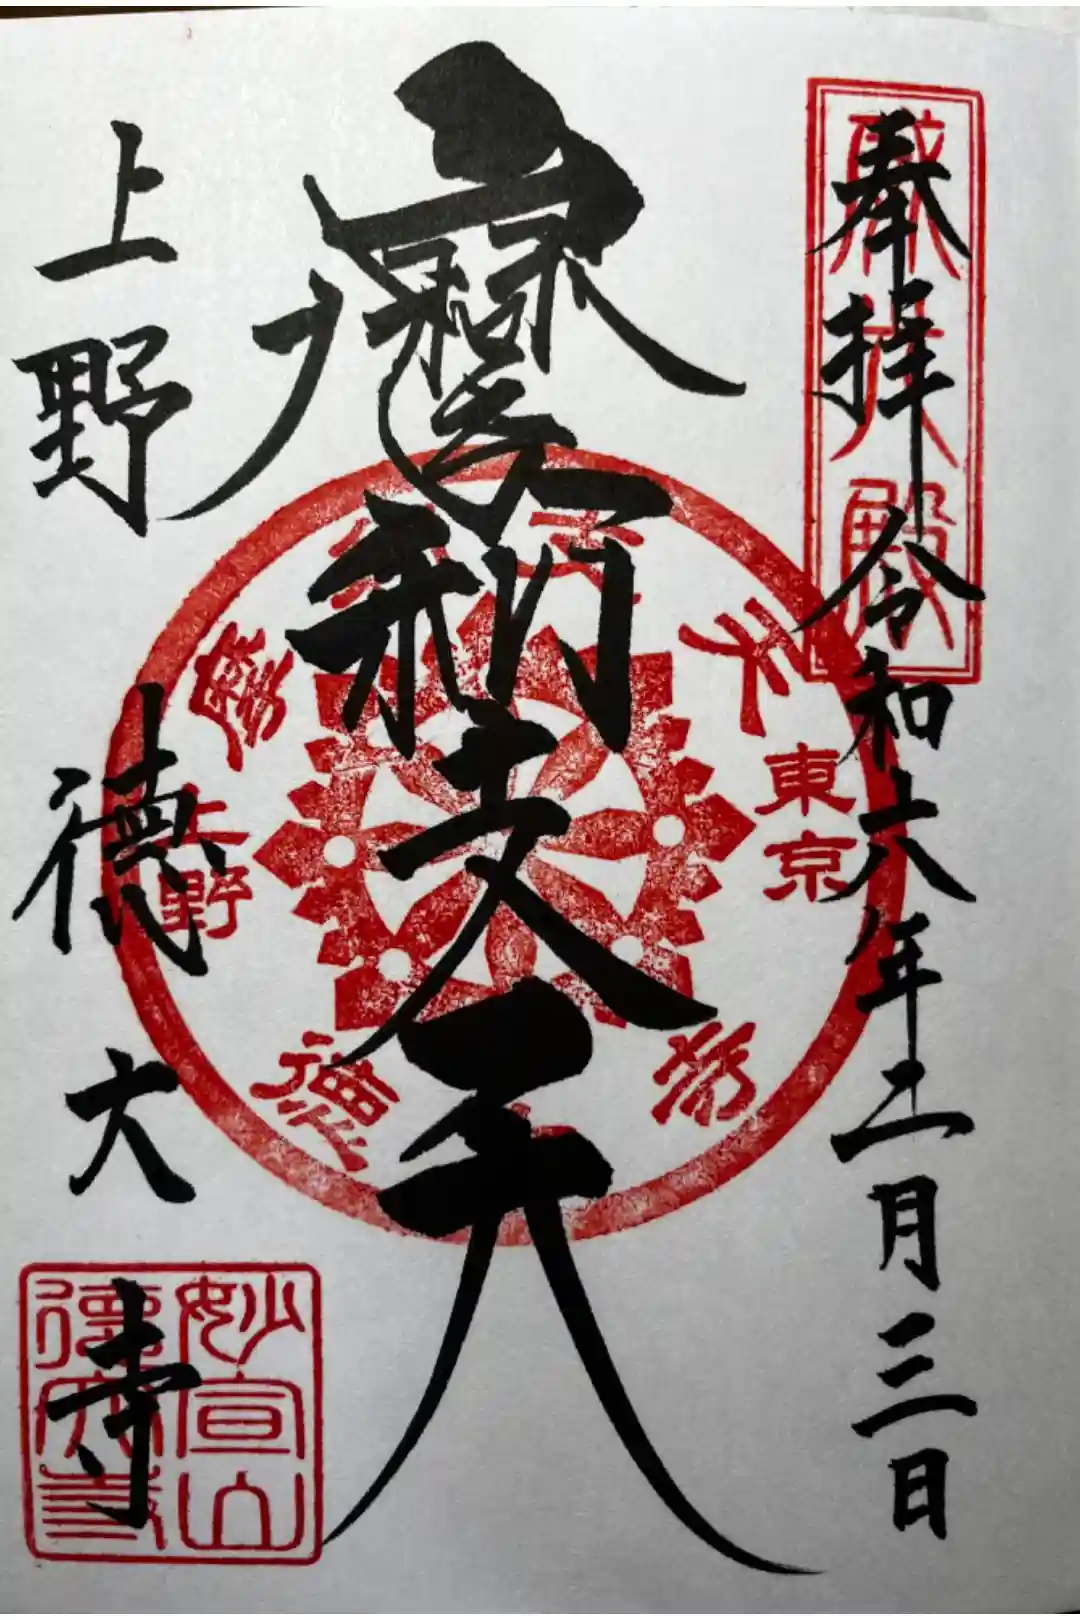 奉拝 令和六年二月三日
摩利支天
上野 徳大寺
東京
上野
妙宣山
徳大寺